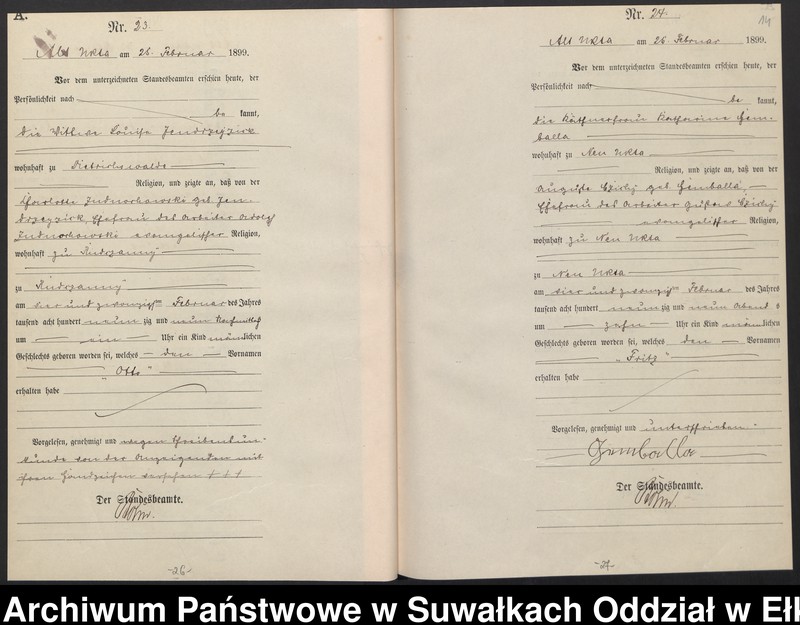 A.
Nr. 23.
Alt Ukta am 26. Februar 1899.
Vor dem unterzeichneten Standesbeamten erschien heute, der
Persönlichkeit nach
be kannt,
die Wittwe Louise Jendrzeyzick
wohnhaft zu Dietrichswalde
Religion, und zeigte an, daß von der
Charlotte Judnochowski geb. Jen-
drzeyzick, Ehefrau des Arbeiter Adolf
Judnochowski evangelischer Religion,
wohnhaft zu Kudrzanny
zu Kudrzanny
am vier und zwanzigsten Februar des Jahres
tausend acht hundert neun zig und neun Nachmittags
um ein Uhr ein Kind männlichen
Geschlechts geboren worden sei, welches den Vornamen
„Otto“
erhalten habe
Vorgelesen, genehmigt und wegen Schreibensun-
kunde von der Anzeigenden mit
ihren Handzeichen versehen + + +
Der Standesbeamte.
-26-
14
Nr. 24.
Alt Ukta am 26. Februar 1899.
Vor dem unterzeichneten Standesbeamten erschien heute, der
Persönlichkeit nach
be kannt,
die Käthnerfrau Katharine Gem-
balla
wohnhaft zu Neu Ukta
Religion, und zeigte an, daß von der
Auguste geb. Gemballa,
Ehefrau des Arbeiter Gustav
evangelischer Religion,
wohnhaft zu Neu Ukta
zu Neu Ukta
am vier und zwanzigsten Februar des Jahres
tausend acht hundert neun zig und neun Abend s
um zehn Uhr ein Kind männlichen
Geschlechts geboren worden sei, welches den Vornamen
„Fritz“
erhalten habe
Vorgelesen, genehmigt und unterschrieben.
Gemballa
Der Standesbeamte.
-27-
Archiwum Państwowe w Suwałkach Oddział w Ełk